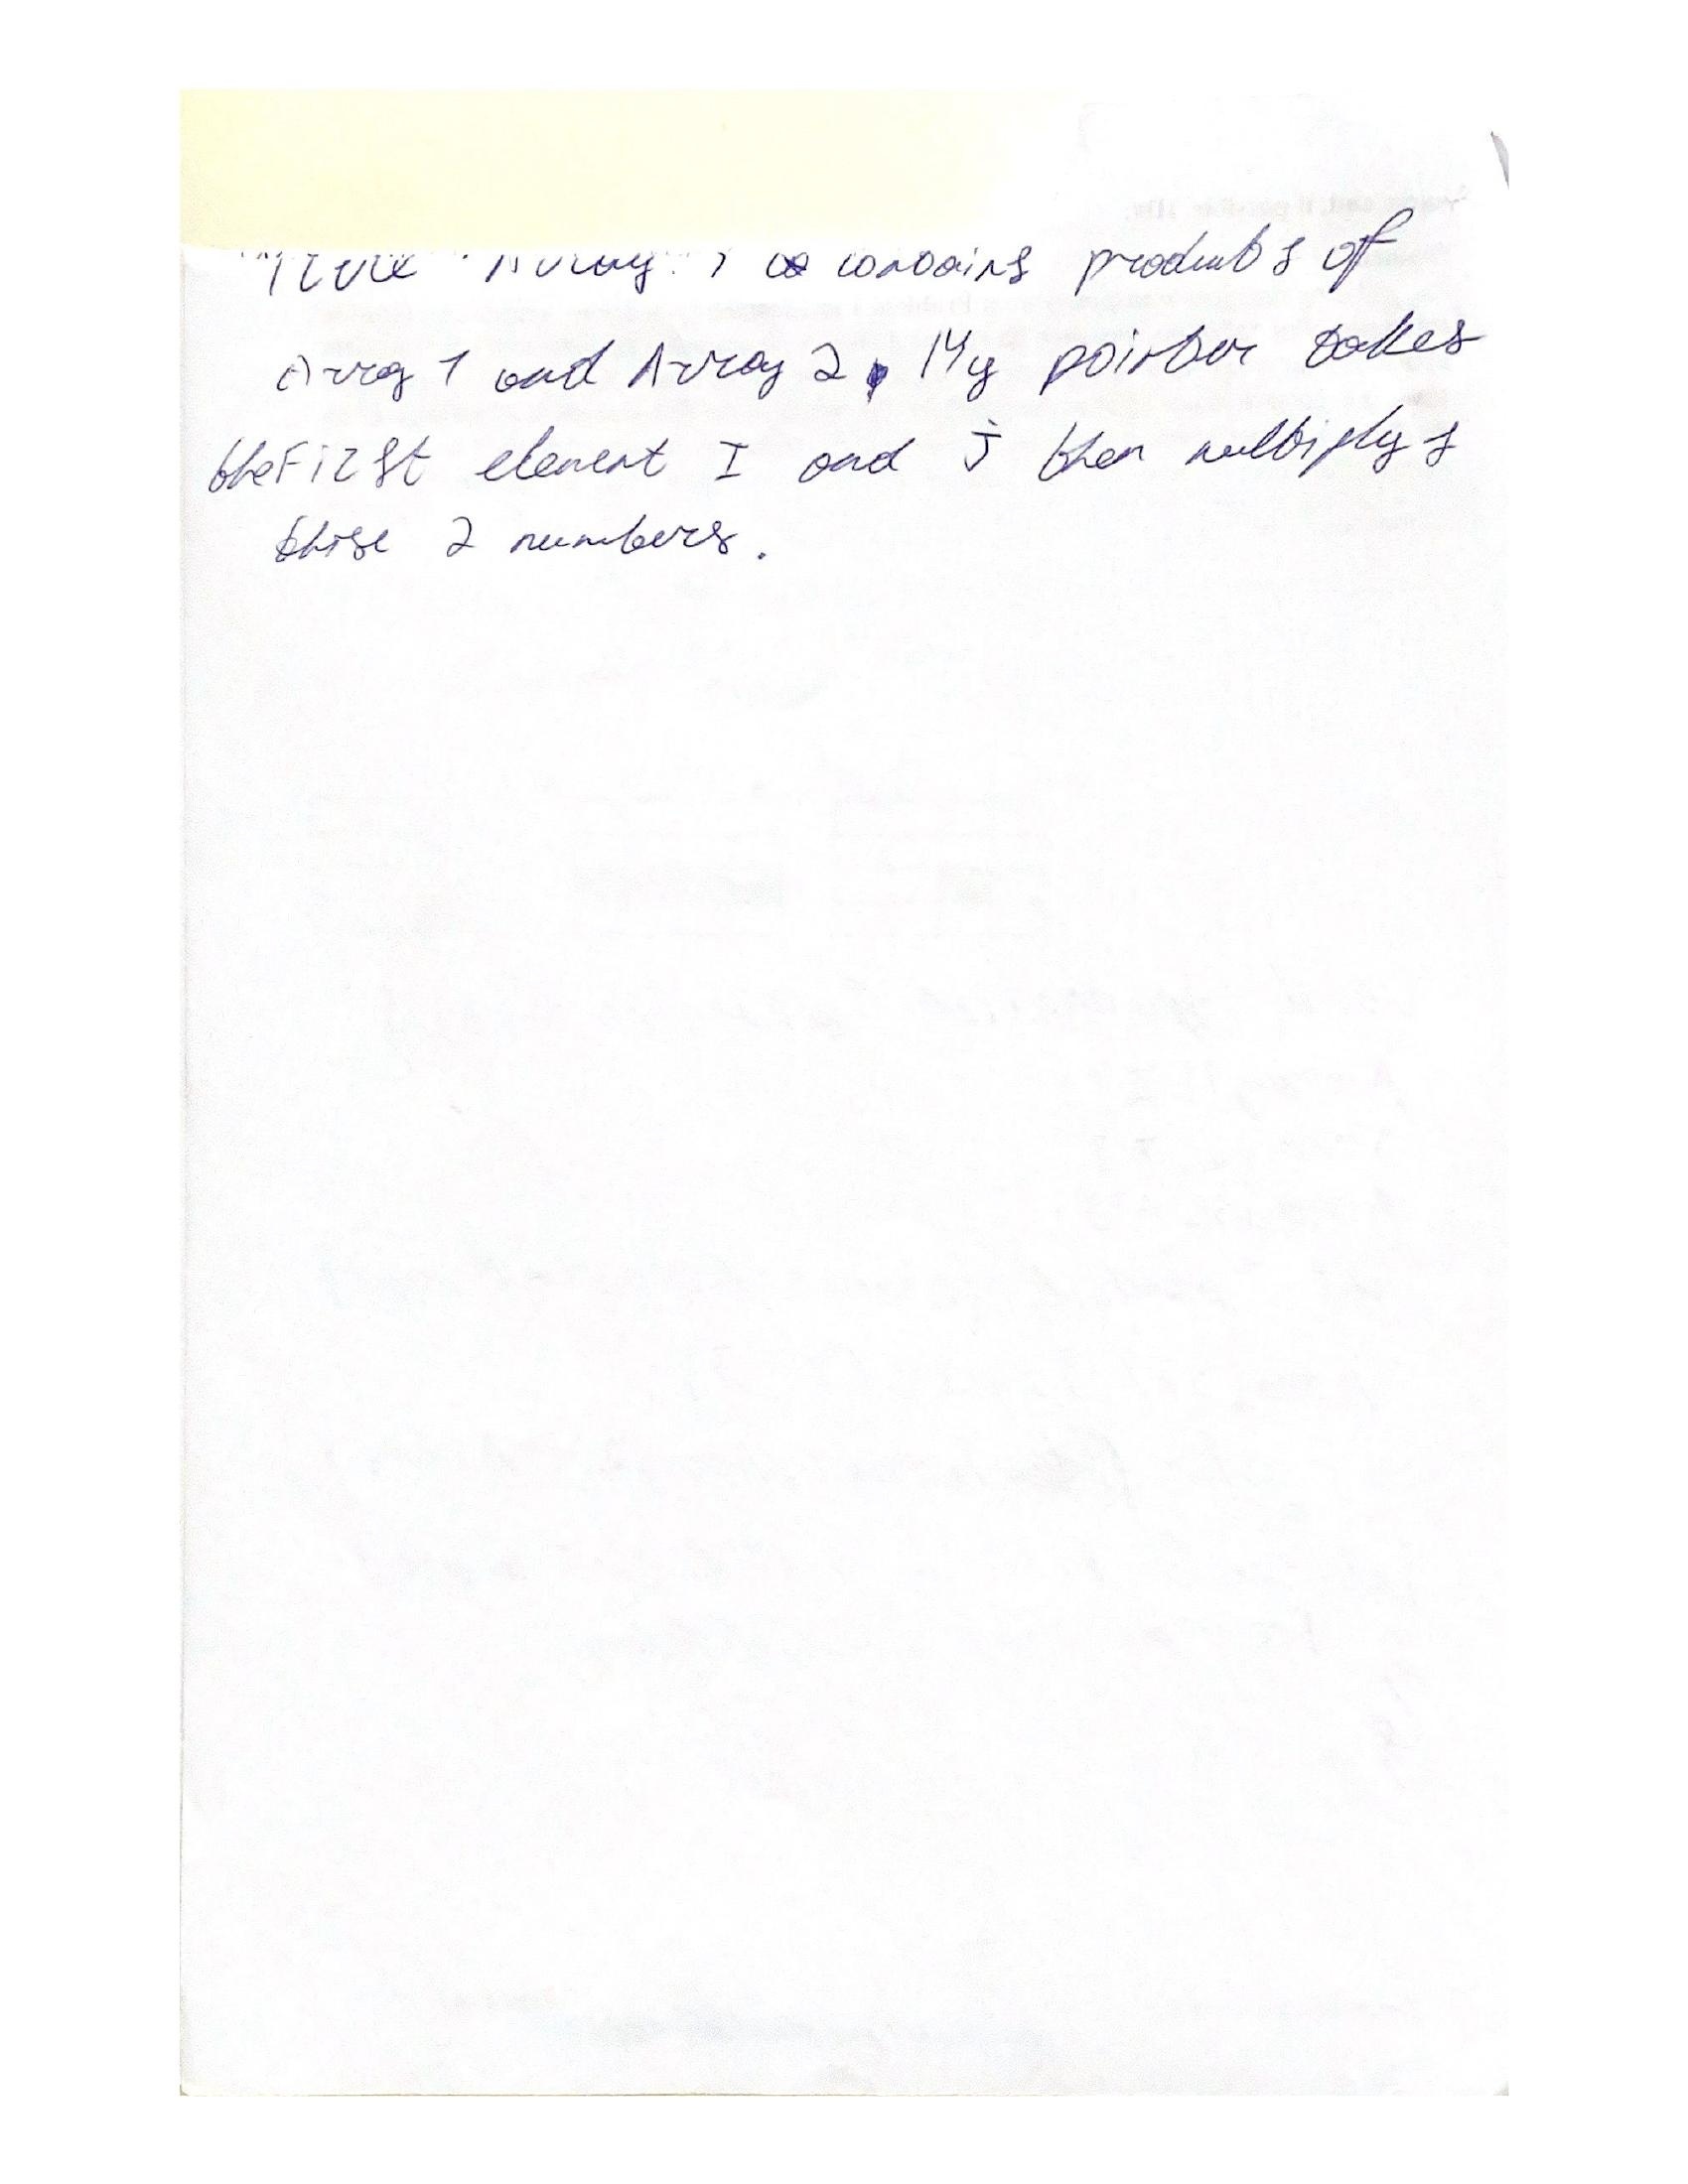 Array 3 contains products of
Array 1 and Array 2. My pointer takes
the First element I and j then multiplys
those 2 numbers.